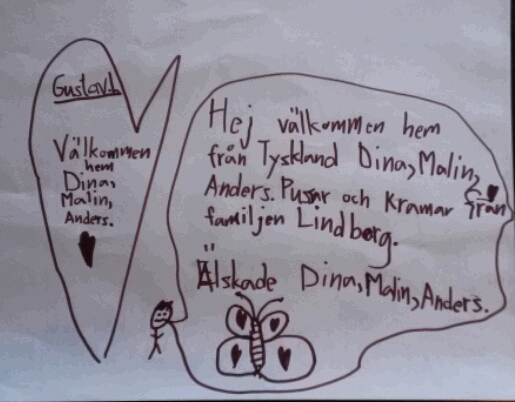 Gustav.L
Välkommen
hem
Dina,
Malin,
Anders.
Hej välkommen hem
från Tyskland Dina, Malin,
Anders. Pussar och Kramar från
familjen Lindberg.
Älskade Dina, Malin, Anders.